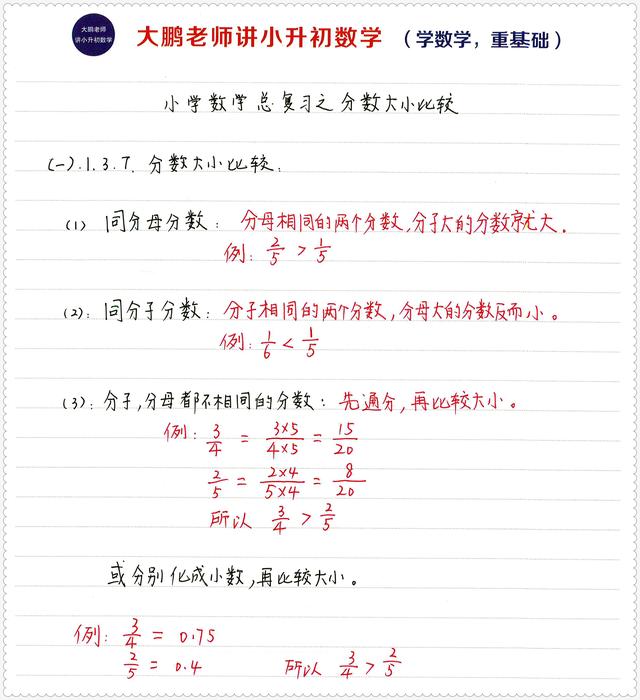 大鹏老师
讲小升初数学
大鹏老师讲小升初数学 (学数学，重基础)
小学数学总复习之分数大小比较
(一).1.3.7. 分数大小比较：
(1) 同分母分数：分母相同的两个分数,分子大的分数就大.
例：2/5 > 1/5
(2)：同分子分数：分子相同的两个分数,分母大的分数反而小。
例：1/6 < 1/5
(3)：分子,分母都不相同的分数：先通分,再比较大小。
例：3/4 = 3×5/4×5 = 15/20
2/5 = 2×4/5×4 = 8/20
所以 3/4 > 2/5
或分别化成小数,再比较大小。
例：3/4 = 0.75
2/5 = 0.4 所以 3/4 > 2/5